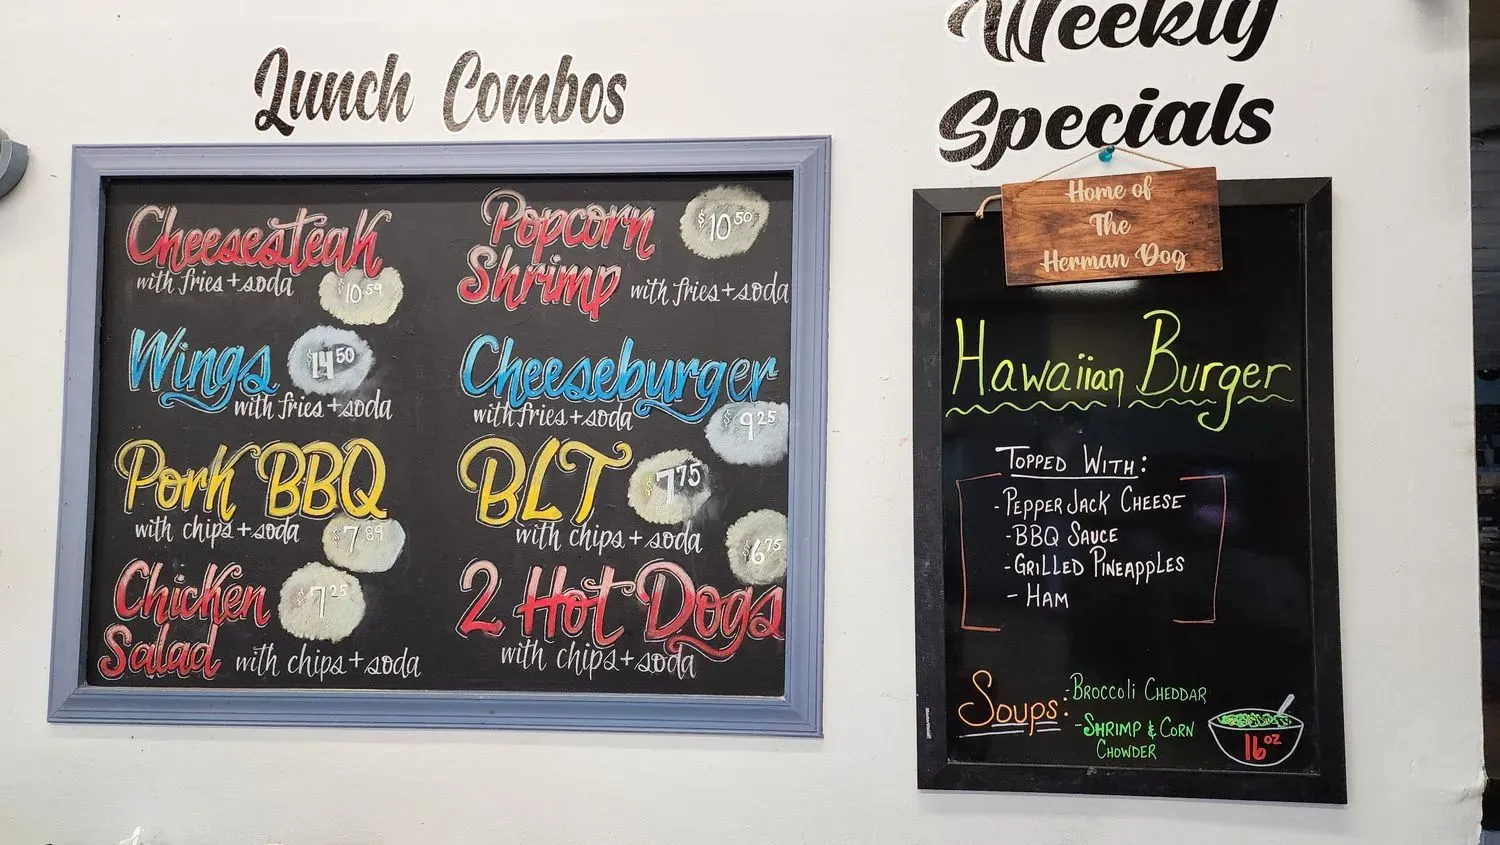 Lunch Combos
Cheesesteak
with fries + soda
$10.59
Wings
$14.50
with fries + soda
Pork BBQ
with chips + soda
$7.89
Chicken
Salad
$7.25
with chips + soda
Popcorn
Shrimp
$10.50
with fries + soda
Cheeseburger
with fries + soda
$9.25
BLT
$7.75
with chips + soda
$6.75
2 Hot Dogs
with chips + soda
Weekly
Specials
Home of
The
Herman Dog
Hawaiian Burger
TOPPED WITH:
- PEPPER JACK CHEESE
- BBQ SAUCE
- GRILLED PINEAPPLES
- HAM
SOUPS:
- BROCCOLI CHEDDAR
- SHRIMP & CORN
CHOWDER
16 OZ